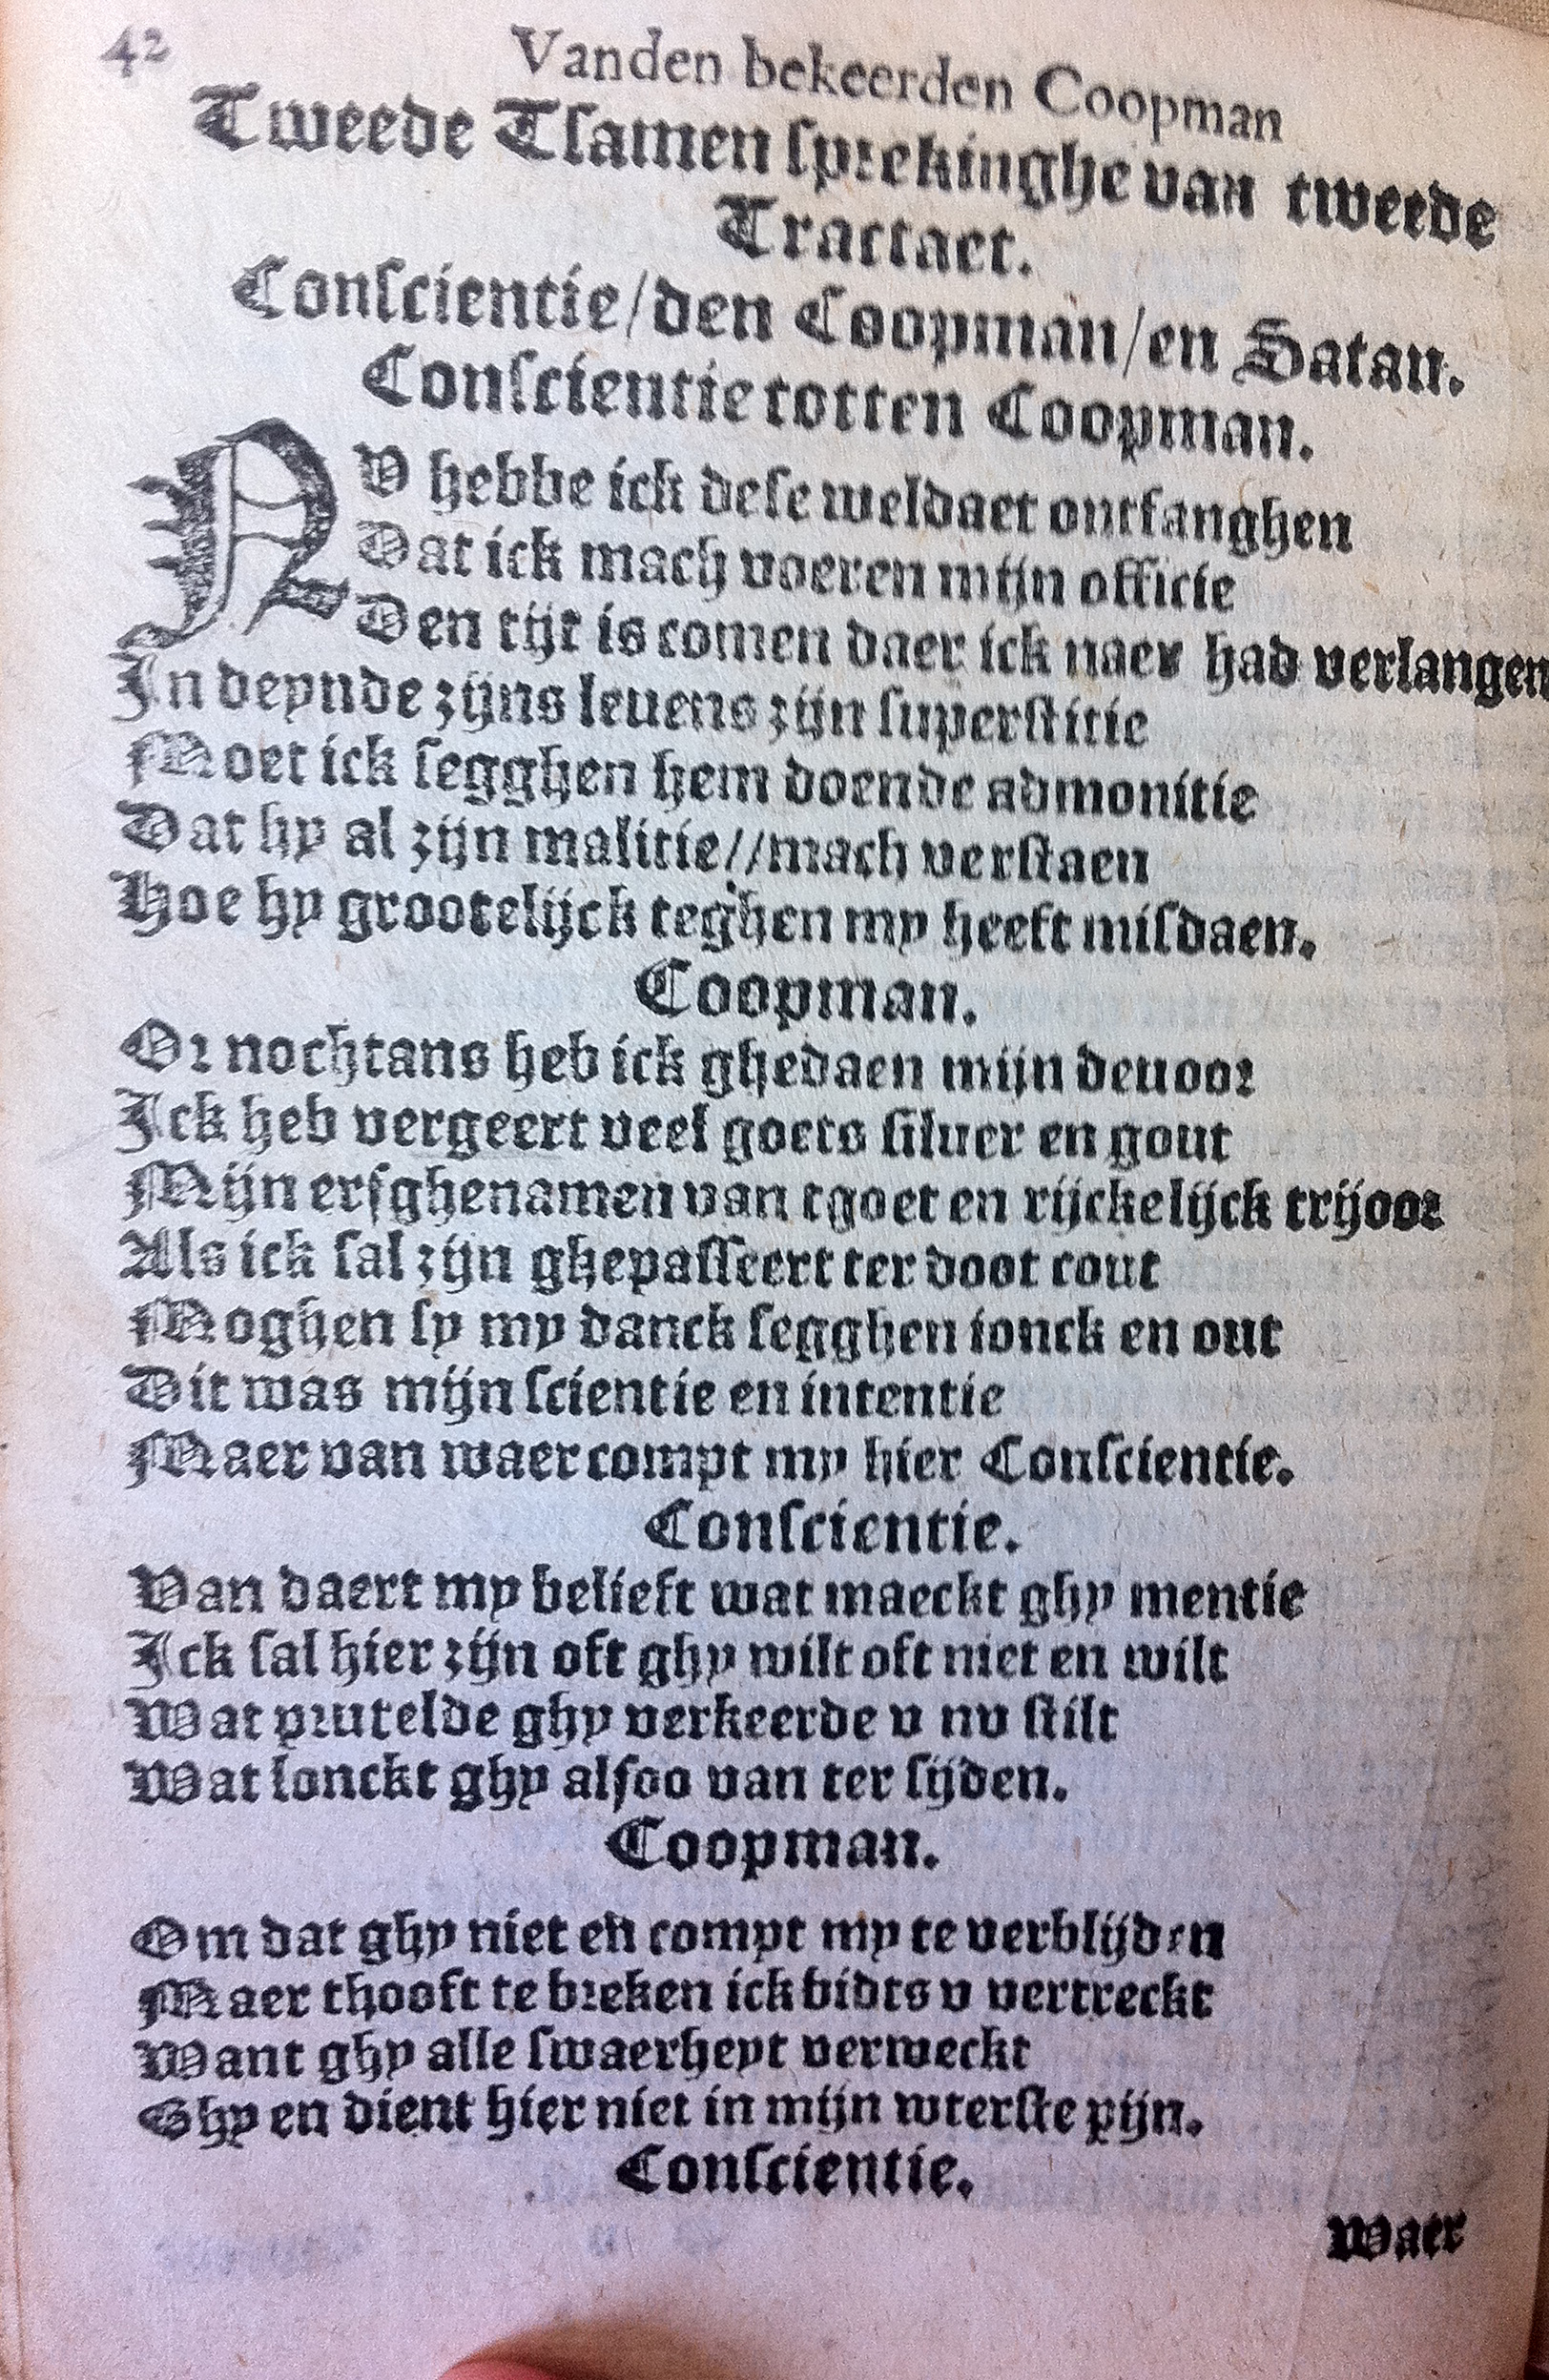 42 Vanden bekeerden Coopman
Tweede Tſamen ſprekinghe van tweede
Tractaet.
Conſcientie/den Coopman/en Satan.
Conſcientie totten Coopman.
NV hebbe ick deſe weldaet ontfanghen
Dat ick mach voeren mijn officie
Den tijt is comen daer ick naer had verlangen
In deynde zijns leuens zijn ſuperſtitie
Moet ick ſegghen hem doende admonitie
Dat hy al zijn malitie//mach verſtaen
Hoe hy grootelijck teghen my heeft miſdaen.
Coopman.
Or nochtans heb ick ghedaen mijn deuoor
Ick heb vergeert veel goets ſiluer en gout
Mijn erfghenamen van tgoet en rijckelijck trijoor
Als ick ſal zijn ghepaſſeert ter doot cout
Moghen ſy my danck ſegghen ionck en out
Dit was mijn ſcientie en intentie
Maer van waer compt my hier Conſcientie.
Conſcientie.
Van daert my belieft wat maeckt ghy mentie
Ick ſal hier zijn oft ghy wilt oft niet en wilt
Wat prutelde ghy verkeerde v nv ſtilt
Wat lonckt ghy alſoo van ter ſijden.
Coopman.
Om dat ghy niet en compt my te verblijden
Maer thooft te breken ick bidts v vertreckt
Want ghy alle ſwaerheyt verweckt
Ghy en dient hier niet in mijn wterſte pijn.
Conſcientie.
Waer